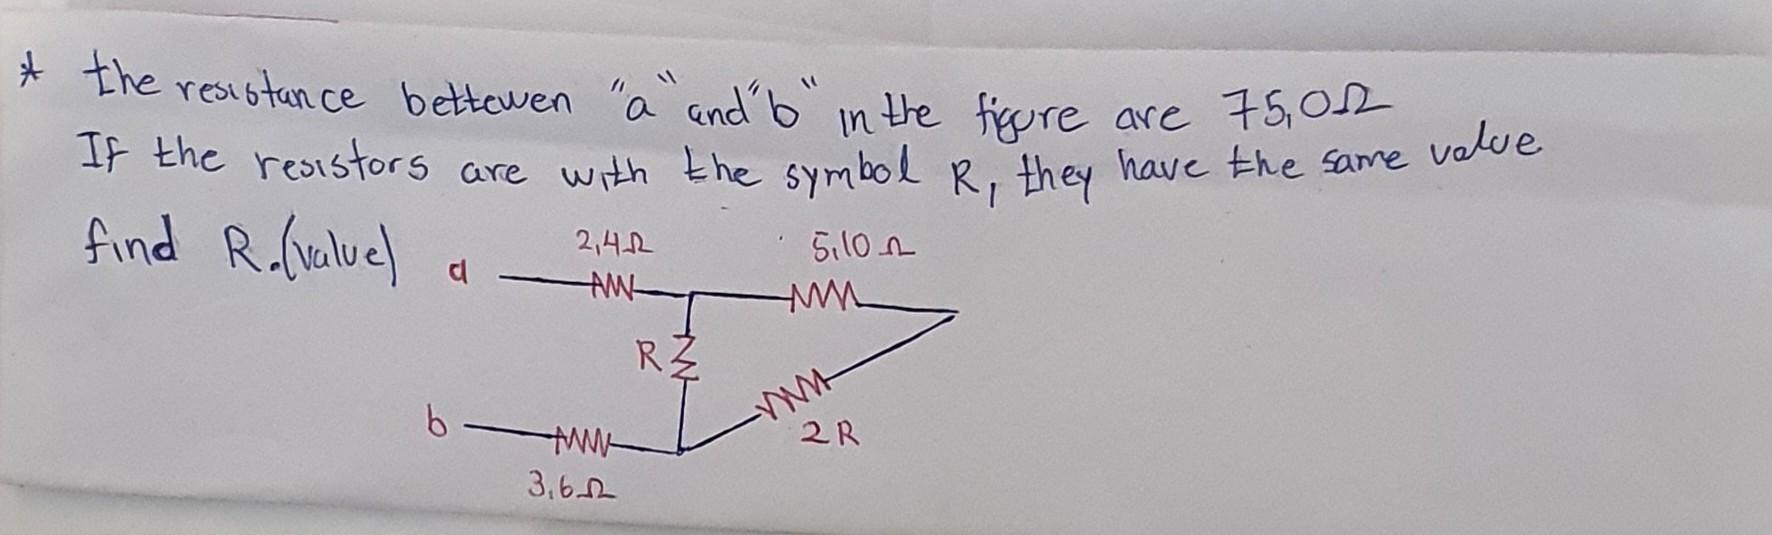 * the resistance bettewen "a" and "b" in the figure are 75,0Ω
If the resistors are with the symbol R, they have the same value
find R.(value)
a
2,4Ω
5,10 Ω
R
b
2R
3,6Ω